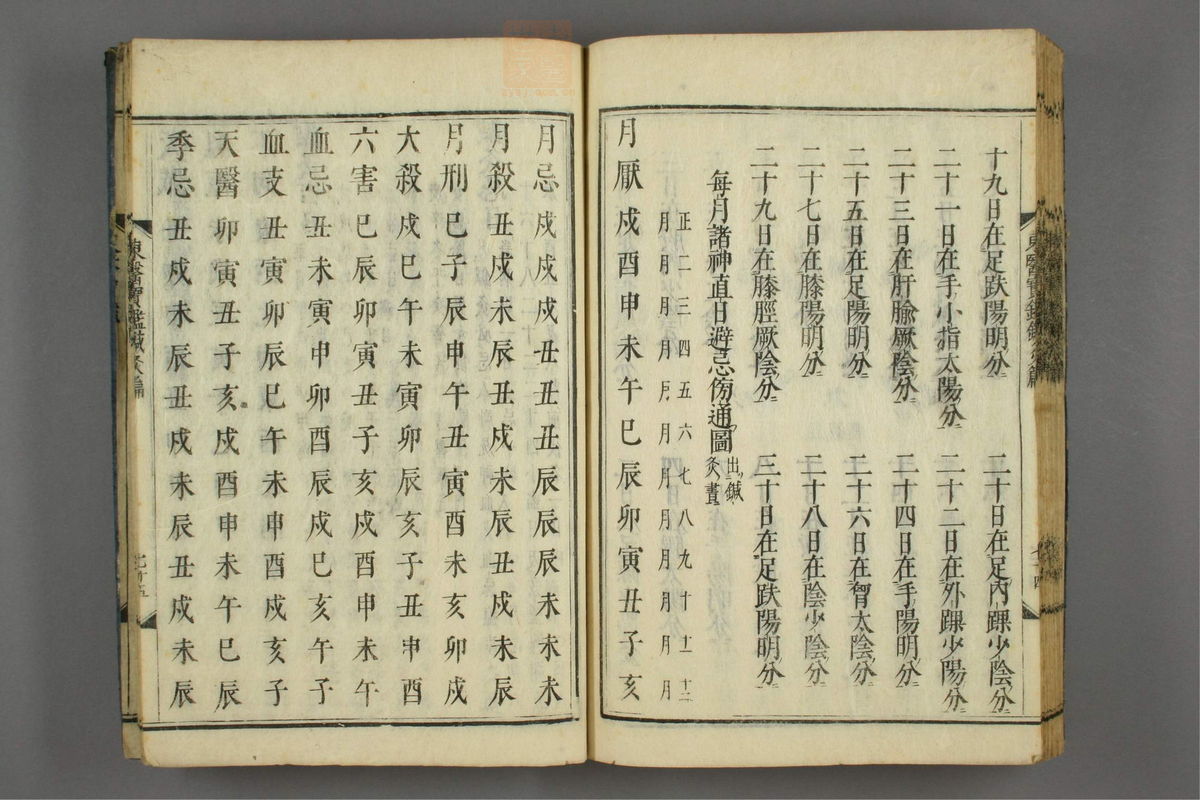 十九日在足趺陽明分 二十日在足內踝少陰分
二十一日在手小指太陽分 二十二日在外踝少陽分
二十三日在肝腧厥陰分 二十四日在手陽明分
二十五日在足陽明分 二十六日在胷太陰分
二十七日在膝陽明分 二十八日在陰少陰分
二十九日在膝脛厥陰分 三十日在足趺陽明分
每月諸神直日避忌傍通圖 出鍼灸書
正月 二月 三月 四月 五月 六月 七月 八月 九月 十月 十一月 十二月
月厭 戌 酉 申 未 午 巳 辰 卯 寅 丑 子 亥
月忌 戌 戌 戌 丑 丑 丑 辰 辰 辰 未 未 未
月殺 丑 戌 未 辰 丑 戌 未 辰 丑 戌 未 辰
月刑 巳 子 辰 申 午 丑 寅 酉 未 亥 卯 戌
大殺 戌 巳 午 未 寅 卯 辰 亥 子 丑 申 酉
六害 巳 辰 卯 寅 丑 子 亥 戌 酉 申 未 午
血忌 丑 未 寅 申 卯 酉 辰 戌 巳 亥 午 子
血支 丑 寅 卯 辰 巳 午 未 申 酉 戌 亥 子
天醫 卯 寅 丑 子 亥 戌 酉 申 未 午 巳 辰
季忌 丑 戌 未 辰 丑 戌 未 辰 丑 戌 未 辰
東醫寶鑑鍼灸篇